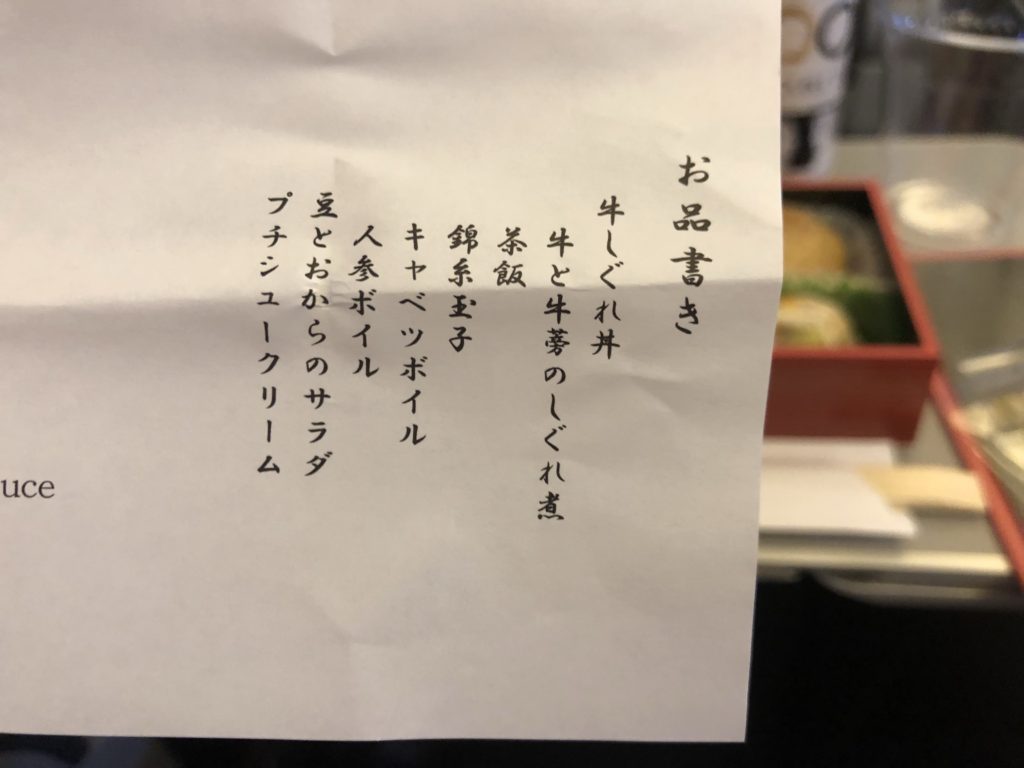 お品書き
牛しぐれ丼
牛と牛蒡のしぐれ煮
茶飯
錦糸玉子
キャベツボイル
人参ボイル
豆とおからのサラダ
プチシュークリーム
uce